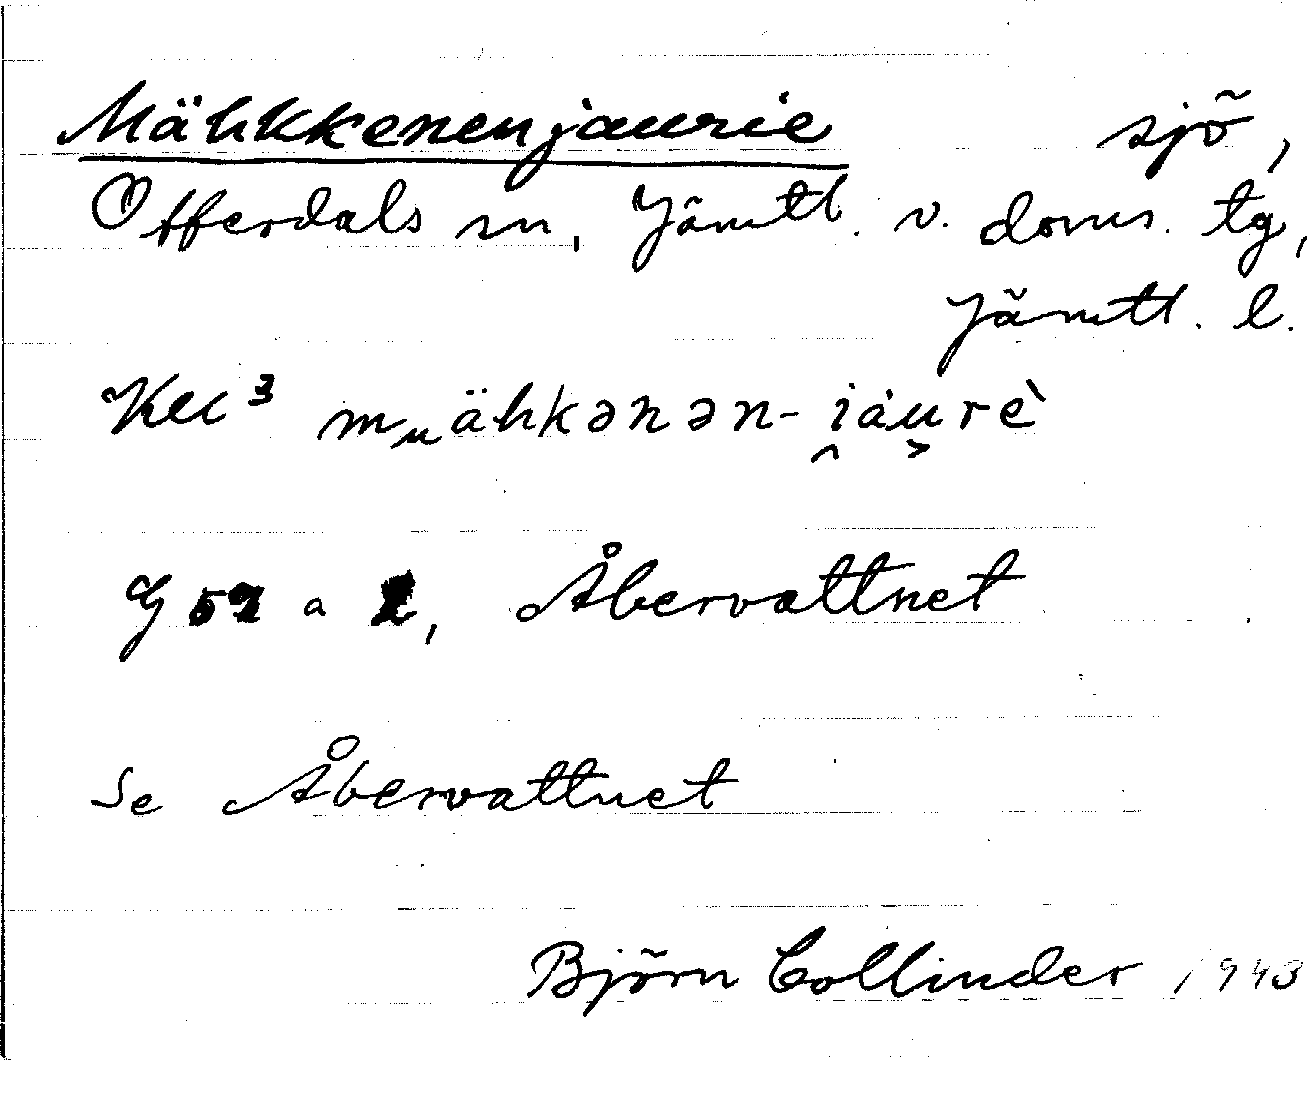 Mähkkenenjaurie sjö,
Offerdals sn, Jämtl. v. doms. tg,
Jämtl. l.
mᵤähkənən-i̭áu̯rè
G a 2, Åbervattnet
Se Åbervattnet
Björn Collinder 1943